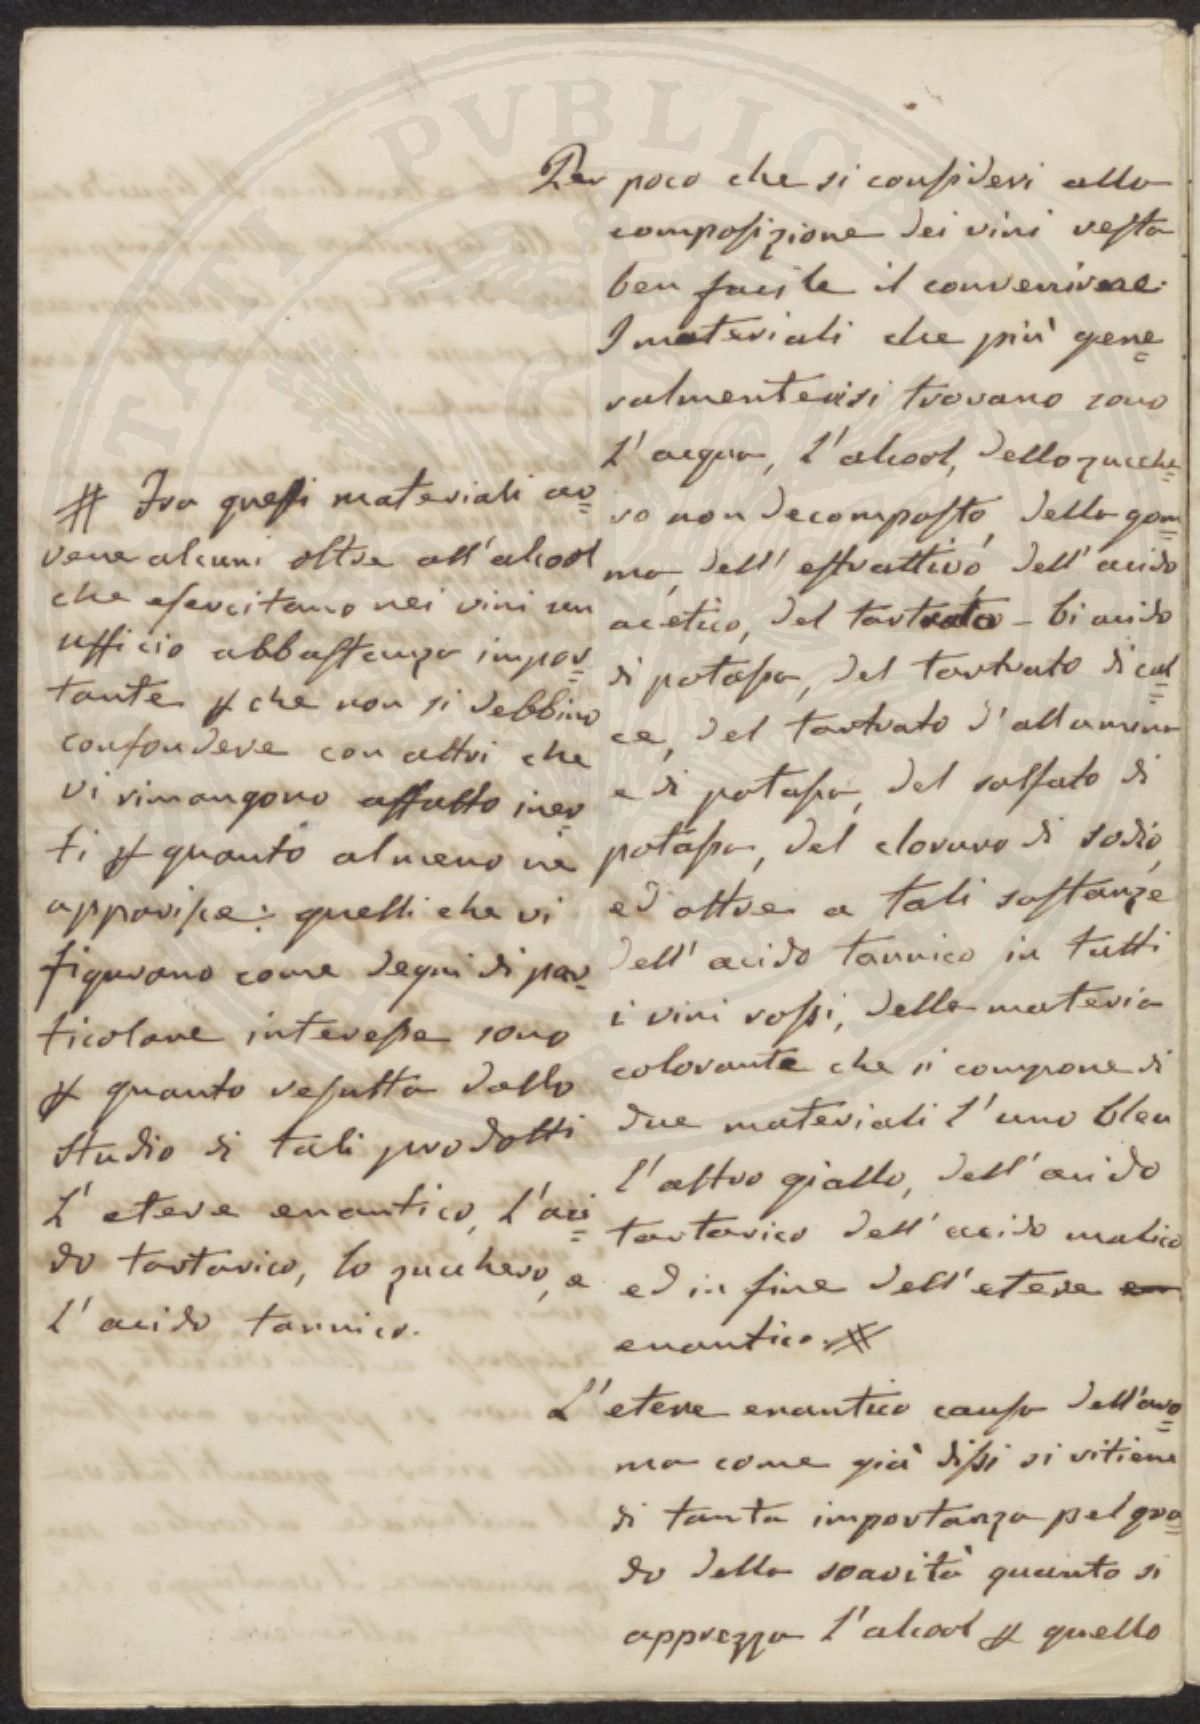 Per poco che si consideri alla
composizione dei vini resta
ben facile il convenirne.
I materiali che più gene=
ralmente visi trovano sono
L'acqua, l'alcool, dello zucche=
ro non decomposto, della gom=
ma, dell'estrattivo, dell'acido
acetico, del tartrato-bi acido
di potassa, del tartrato di cal=
ce, del tartrato d'allumina
e di potassa, del solfato di
potassa, del cloruro di sodio,
ed oltre a tali sostanze
dell'acido tannico in tutti
i vini rossi, della materia
colorante che si compone di
due materiali l'uno bleu
l'altro giallo, dell'acido
tartarico dell'acido malico
ed in fine dell'etere en
enantico. #
L'etere enantico causa dell'aro=
ma come già dissi si ritiene
di tanta importanza pel gra=
do della soavità quanto si
apprezza l'alcool p quello
# Fra questi materiali av=
vene alcuni oltre all'alcool
che esercitano nei vini un
ufficio abbastanza impor=
tante p che non si debbino
confondere con altri che
vi rimangono affatto iner=
ti p quanto almeno ne
apparisce: quelli che vi
figurano come degni di par=
ticolare interesse sono
p quanto resulta dallo
studio di tali prodotti
L'etere enantico, l'aci=
do tartarico, lo zucchero, e
l'acido tannico.
PVBLICAE
TATI